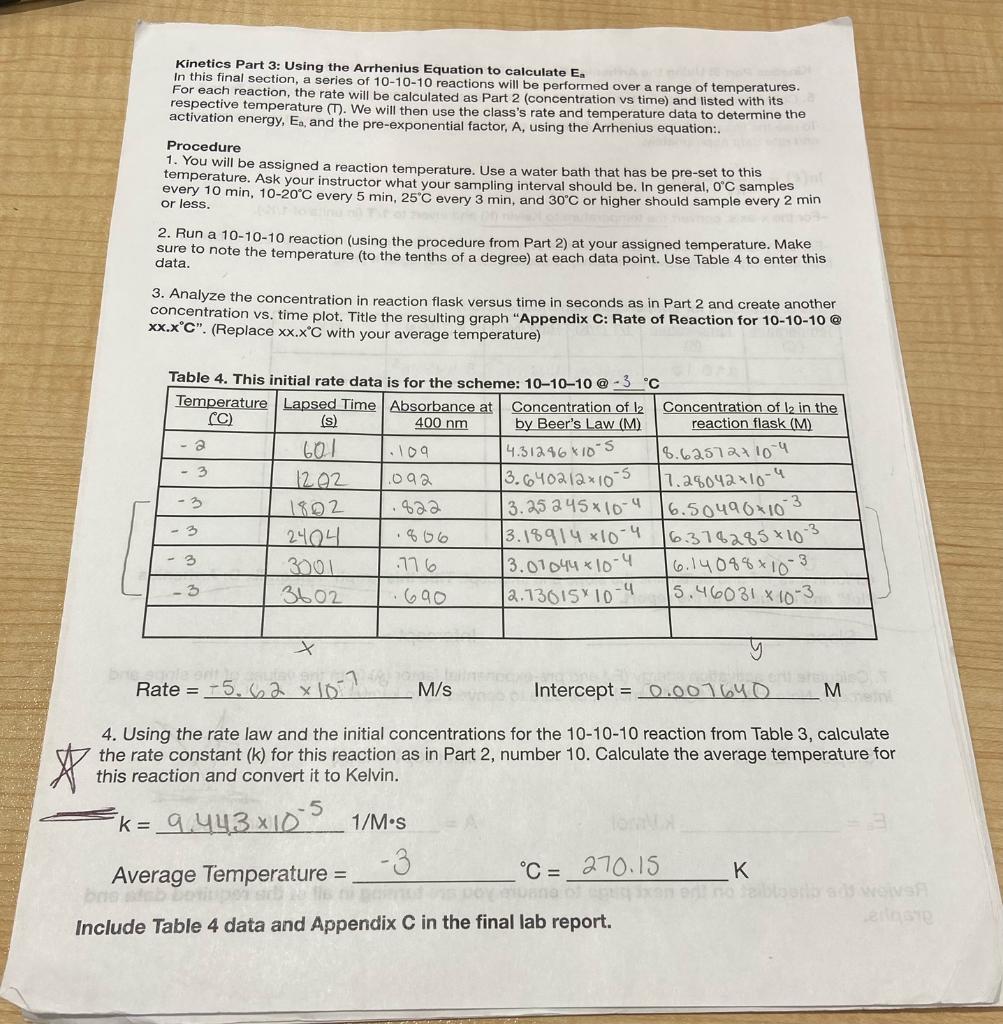 Kinetics Part 3: Using the Arrhenius Equation to calculate Ea
In this final section, a series of 10-10-10 reactions will be performed over a range of temperatures.
For each reaction, the rate will be calculated as Part 2 (concentration vs time) and listed with its
respective temperature (T). We will then use the class's rate and temperature data to determine the
activation energy, Ea, and the pre-exponential factor, A, using the Arrhenius equation:.
Procedure
1. You will be assigned a reaction temperature. Use a water bath that has be pre-set to this
temperature. Ask your instructor what your sampling interval should be. In general, 0°C samples
every 10 min, 10-20°C every 5 min, 25°C every 3 min, and 30°C or higher should sample every 2 min
or less.
2. Run a 10-10-10 reaction (using the procedure from Part 2) at your assigned temperature. Make
sure to note the temperature (to the tenths of a degree) at each data point. Use Table 4 to enter this
data.
3. Analyze the concentration in reaction flask versus time in seconds as in Part 2 and create another
concentration vs. time plot. Title the resulting graph "Appendix C: Rate of Reaction for 10-10-10 @
xx.x°C". (Replace xx.x°C with your average temperature)
Table 4. This initial rate data is for the scheme: 10–10–10 @ -3 °C
Temperature (°C) Lapsed Time (s) Absorbance at 400 nm Concentration of I2 by Beer's Law (M) Concentration of I2 in the reaction flask (M)
-2 601 .109 4.31246x10-5 8.62572x10-4
-3 1202 .092 3.640212x10-5 7.28042x10-4
-3 1802 .822 3.25245x10-4 6.50490x10-3
-3 2404 .806 3.18914x10-4 6.378285x10-3
-3 3001 .776 3.07044x10-4 6.14088x10-3
-3 3602 .690 2.73015x10-4 5.46031x10-3
x y
Rate = -5.62 x10-7 M/s Intercept = 0.007640 M
4. Using the rate law and the initial concentrations for the 10-10-10 reaction from Table 3, calculate
the rate constant (k) for this reaction as in Part 2, number 10. Calculate the average temperature for
this reaction and convert it to Kelvin.
k = 9.443x10-5 1/M•s
Average Temperature = -3 °C = 270.15 K
Include Table 4 data and Appendix C in the final lab report.